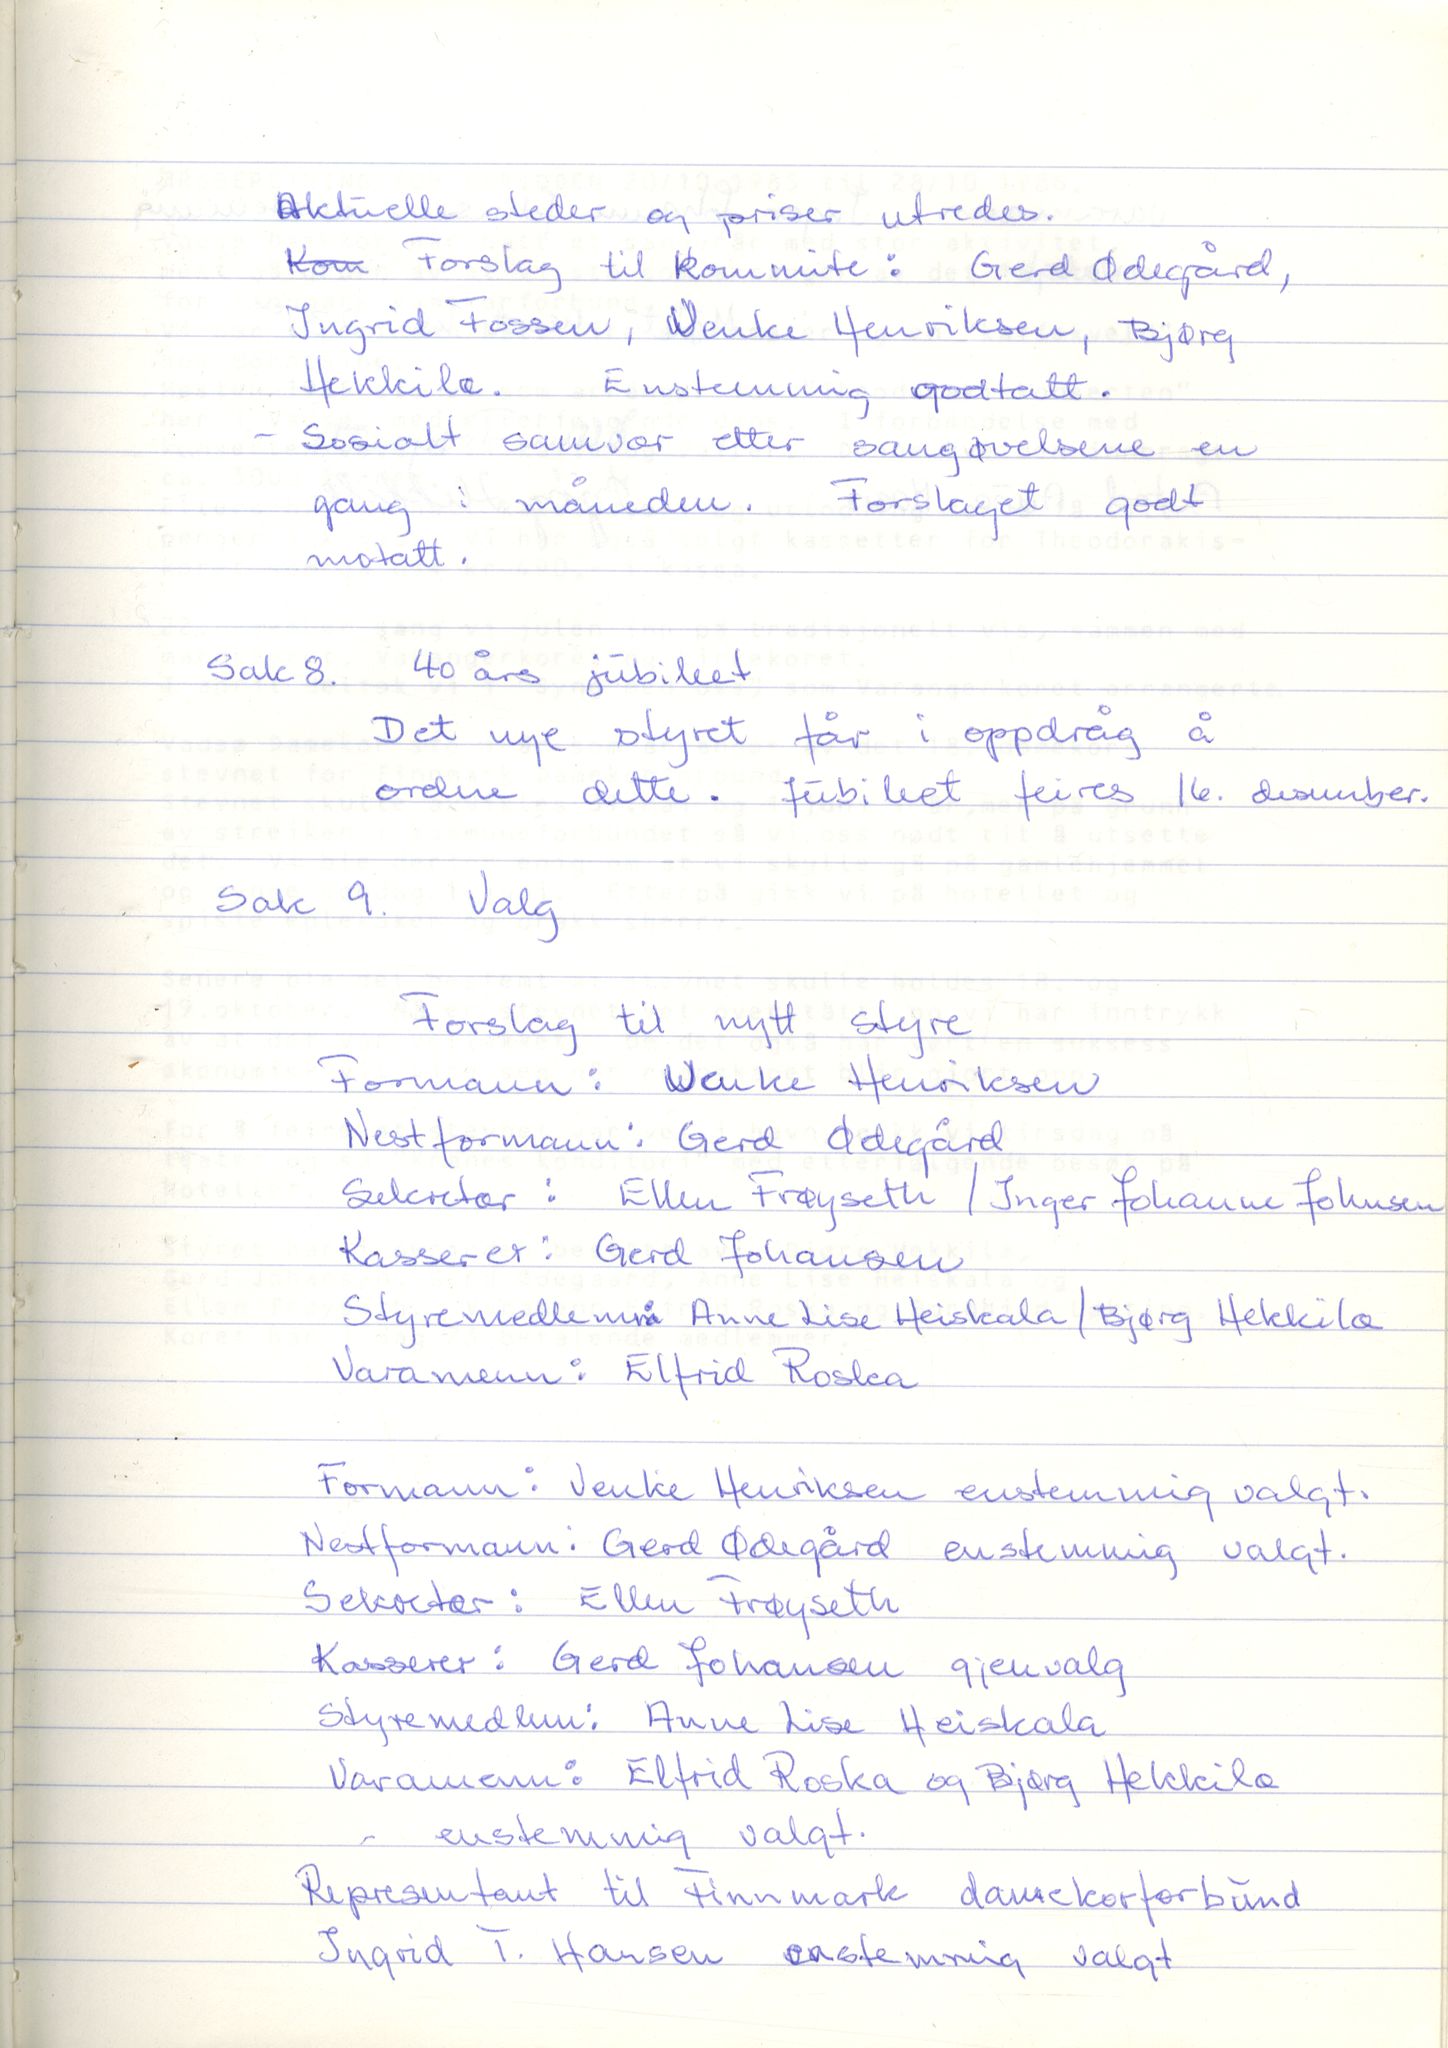 Aktuelle steder og priser utredes.
Kom Forslag til kommite: Gerd Ødegård,
Ingrid Fossen, Wenke Henriksen, Bjørg
Hekkila. Enstemmig godtatt.
- Sosialt samvær etter sangøvelsene en
gang i måneden. Forslaget godt
motatt.
Sak 8. 40 års jubileet
Det nye styret får i oppdråg å
ordne dette. Jubileet feires 16. desember.
Sak 9. Valg
Forslag til nytt styre
Formann: Wenke Henriksen
Nestformann: Gerd Ødegård
Sekretær: Ellen Frøyseth / Inger Johanne Johnsen
Kasserer: Gerd Johansen
Styremedlem: Anne Lise Heiskala / Bjørg Hekkila
Varamenn: Elfrid Roska
Formann: Venke Henriksen enstemmig valgt.
Nestformann: Gerd Ødegård enstemmig valgt.
Sekretær: Ellen Frøyseth
Kasserer: Gerd Johansen gjenvalg
Styremedlem: Anne Lise Heiskala
Varamenn: Elfrid Roska og Bjørg Hekkila
- enstemmig valgt.
Representant til Finnmark damekorforbund
Ingrid T. Hansen enstemmig valgt